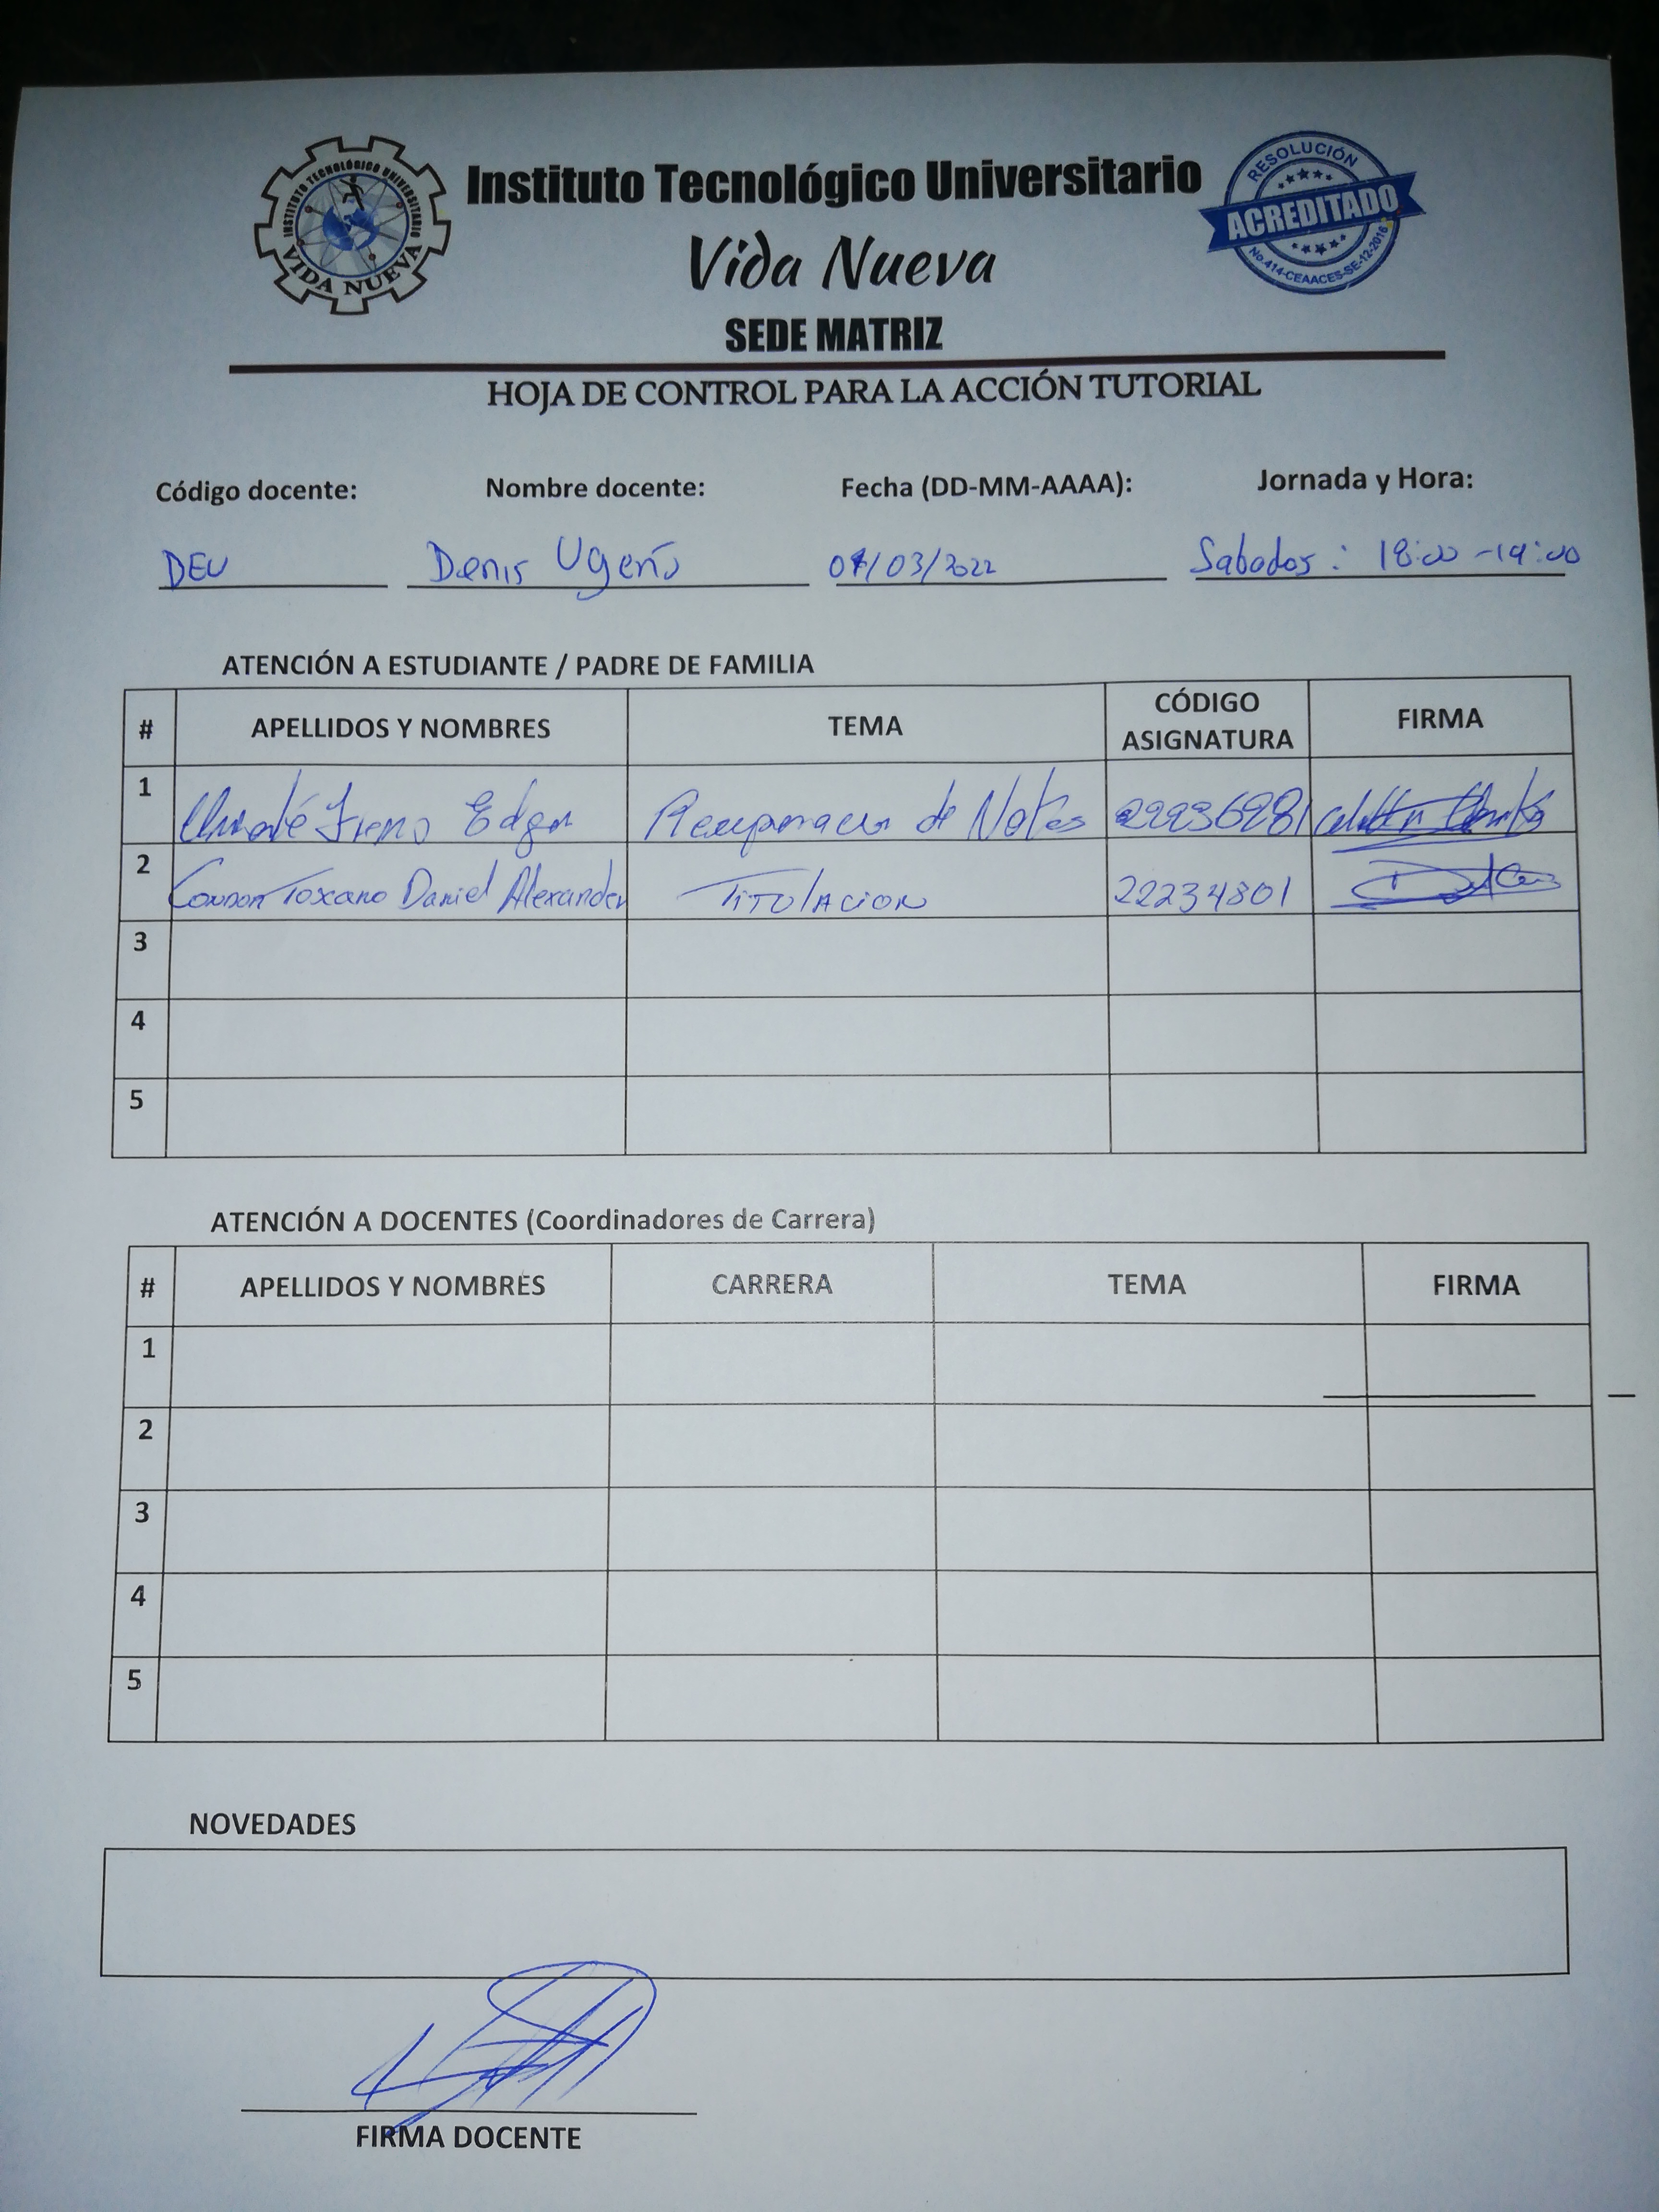 INSTITUTO TECNOLÓGICO UNIVERSITARIO
VIDA NUEVA
Instituto Tecnológico Universitario
Vida Nueva
SEDE MATRIZ
RESOLUCIÓN
ACREDITADO
No.414-CEAACES-SE-12-2016
HOJA DE CONTROL PARA LA ACCIÓN TUTORIAL
Código docente: Nombre docente: Fecha (DD-MM-AAAA): Jornada y Hora:
DEU Denis Ugeño /03/2022 Sabados: 18:00-19:00
ATENCIÓN A ESTUDIANTE / PADRE DE FAMILIA
# APELLIDOS Y NOMBRES TEMA CÓDIGO ASIGNATURA FIRMA
1 Edgar Recuperacion de Notas 22236281
2 Toxcano Daniel Alexander TITULACION 22234801
3
4
5
ATENCIÓN A DOCENTES (Coordinadores de Carrera)
# APELLIDOS Y NOMBRES CARRERA TEMA FIRMA
1
2
3
4
5
NOVEDADES
FIRMA DOCENTE